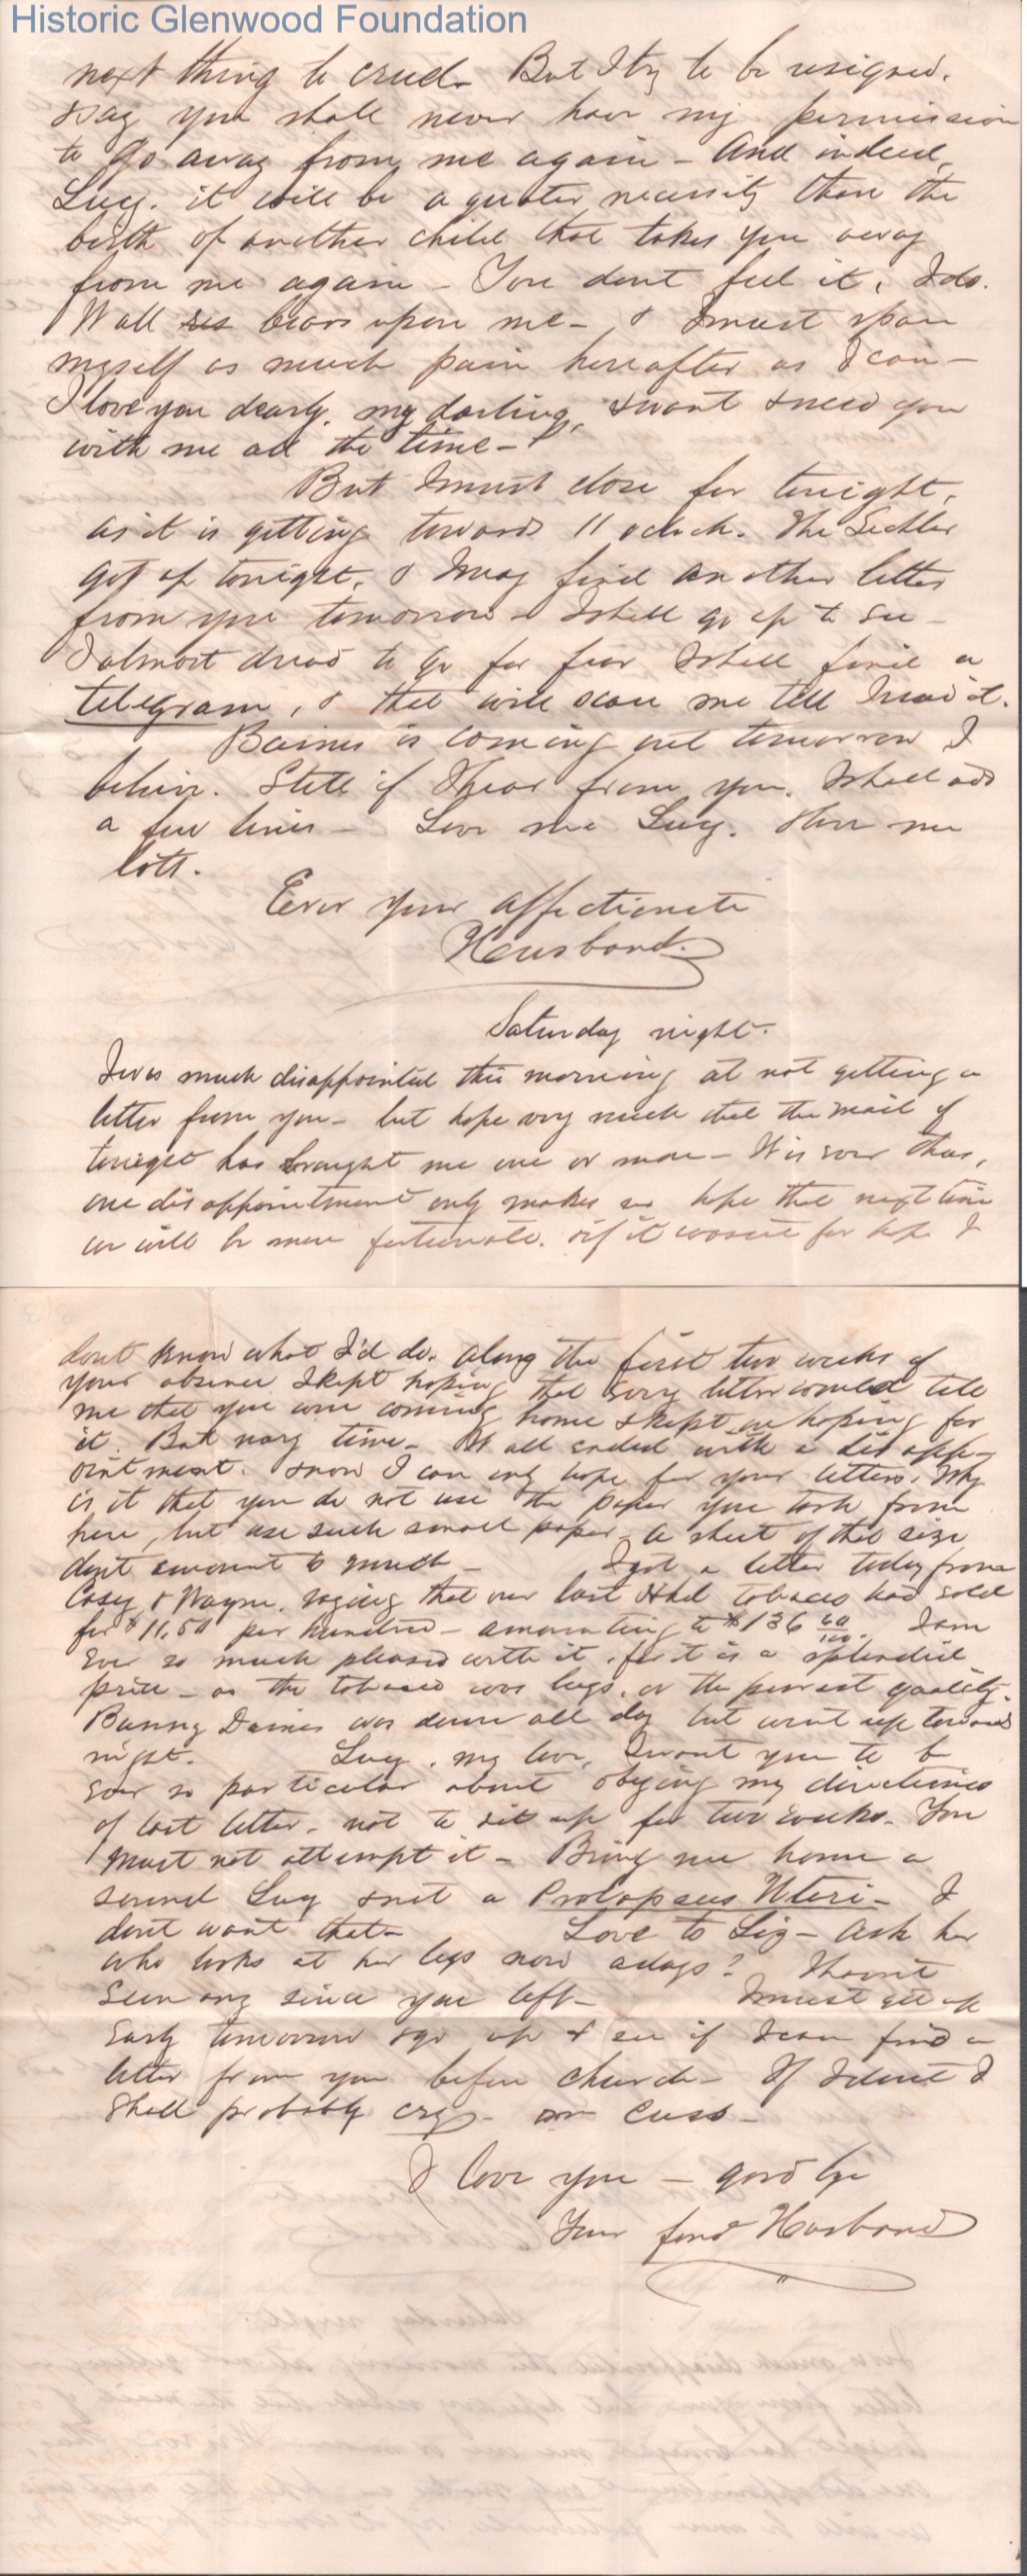 Historic Glenwood Foundation
next thing to cruel. But I try to be resigned.
& say you shall never have my permission
to go away from me again - And indeed,
Lucy. it will be a greater necessity than the
birth of another child that takes you away
from me again - You dont feel it, I do.
It all bears upon me - & I must spare
myself as much pain hereafter as I can -
I love you dearly, my darling, & want & need you
with me all the time -
But I must close for tonight,
as it is getting towards 11 oclock. The
got up tonight, & I may find another letter
from you tomorrow - I shall go up to see -
I almost dread to go for fear I shall find a
telegram, & that will scare me till I read it.
is coming out tomorrow I
believe. Still if I hear from you, I shall add
a few lines - Love me Lucy. Love me
lots.
Ever your affectionate
Husband.
Saturday night.
I was much disappointed this morning at not getting a
letter from you - but hope very much that the mail of
tonight has brought me one or more - It is ever thus,
one disappointment only makes us hope that next time
we will be more fortunate. & if it wasnt for hope I
dont know what I'd do. Along the first two weeks of
your absence I kept hoping that every letter would tell
me that you were coming home & kept on hoping for
it. But nary time - It all ended with a disapp-
ointment. & now I can only hope for your letters. Why
is it that you do not use the paper you took from
here, but use such small paper - a sheet of this size
dont amount to much - I got a letter today from
Casey & Wayne, saying that our last Hhd tobacco had sold
for $11.50 per hundred - amounting to $136 60/100. I am
Ever so much pleased with it, for it is a splendid
price - as the tobacco was lugs, or the poorest quality.
Bunny was down all day but went up towards
night. Lucy, my love, I want you to be
ever so particular about obeying my directions
of last letter - not to sit up for two weeks. You
must not attempt it - Bring me home a
sound Lucy & not a Prolapsus Uteri - I
dont want that - Love to Liz - Ask her
who looks at her legs now adays? I havnt
seen any since you left - I must get up
Early tomorrow & go up & see if I can find a
letter from you before church - If I dont I
shall probably cry - or cuss -
I love you - good bye
Your fond Husband